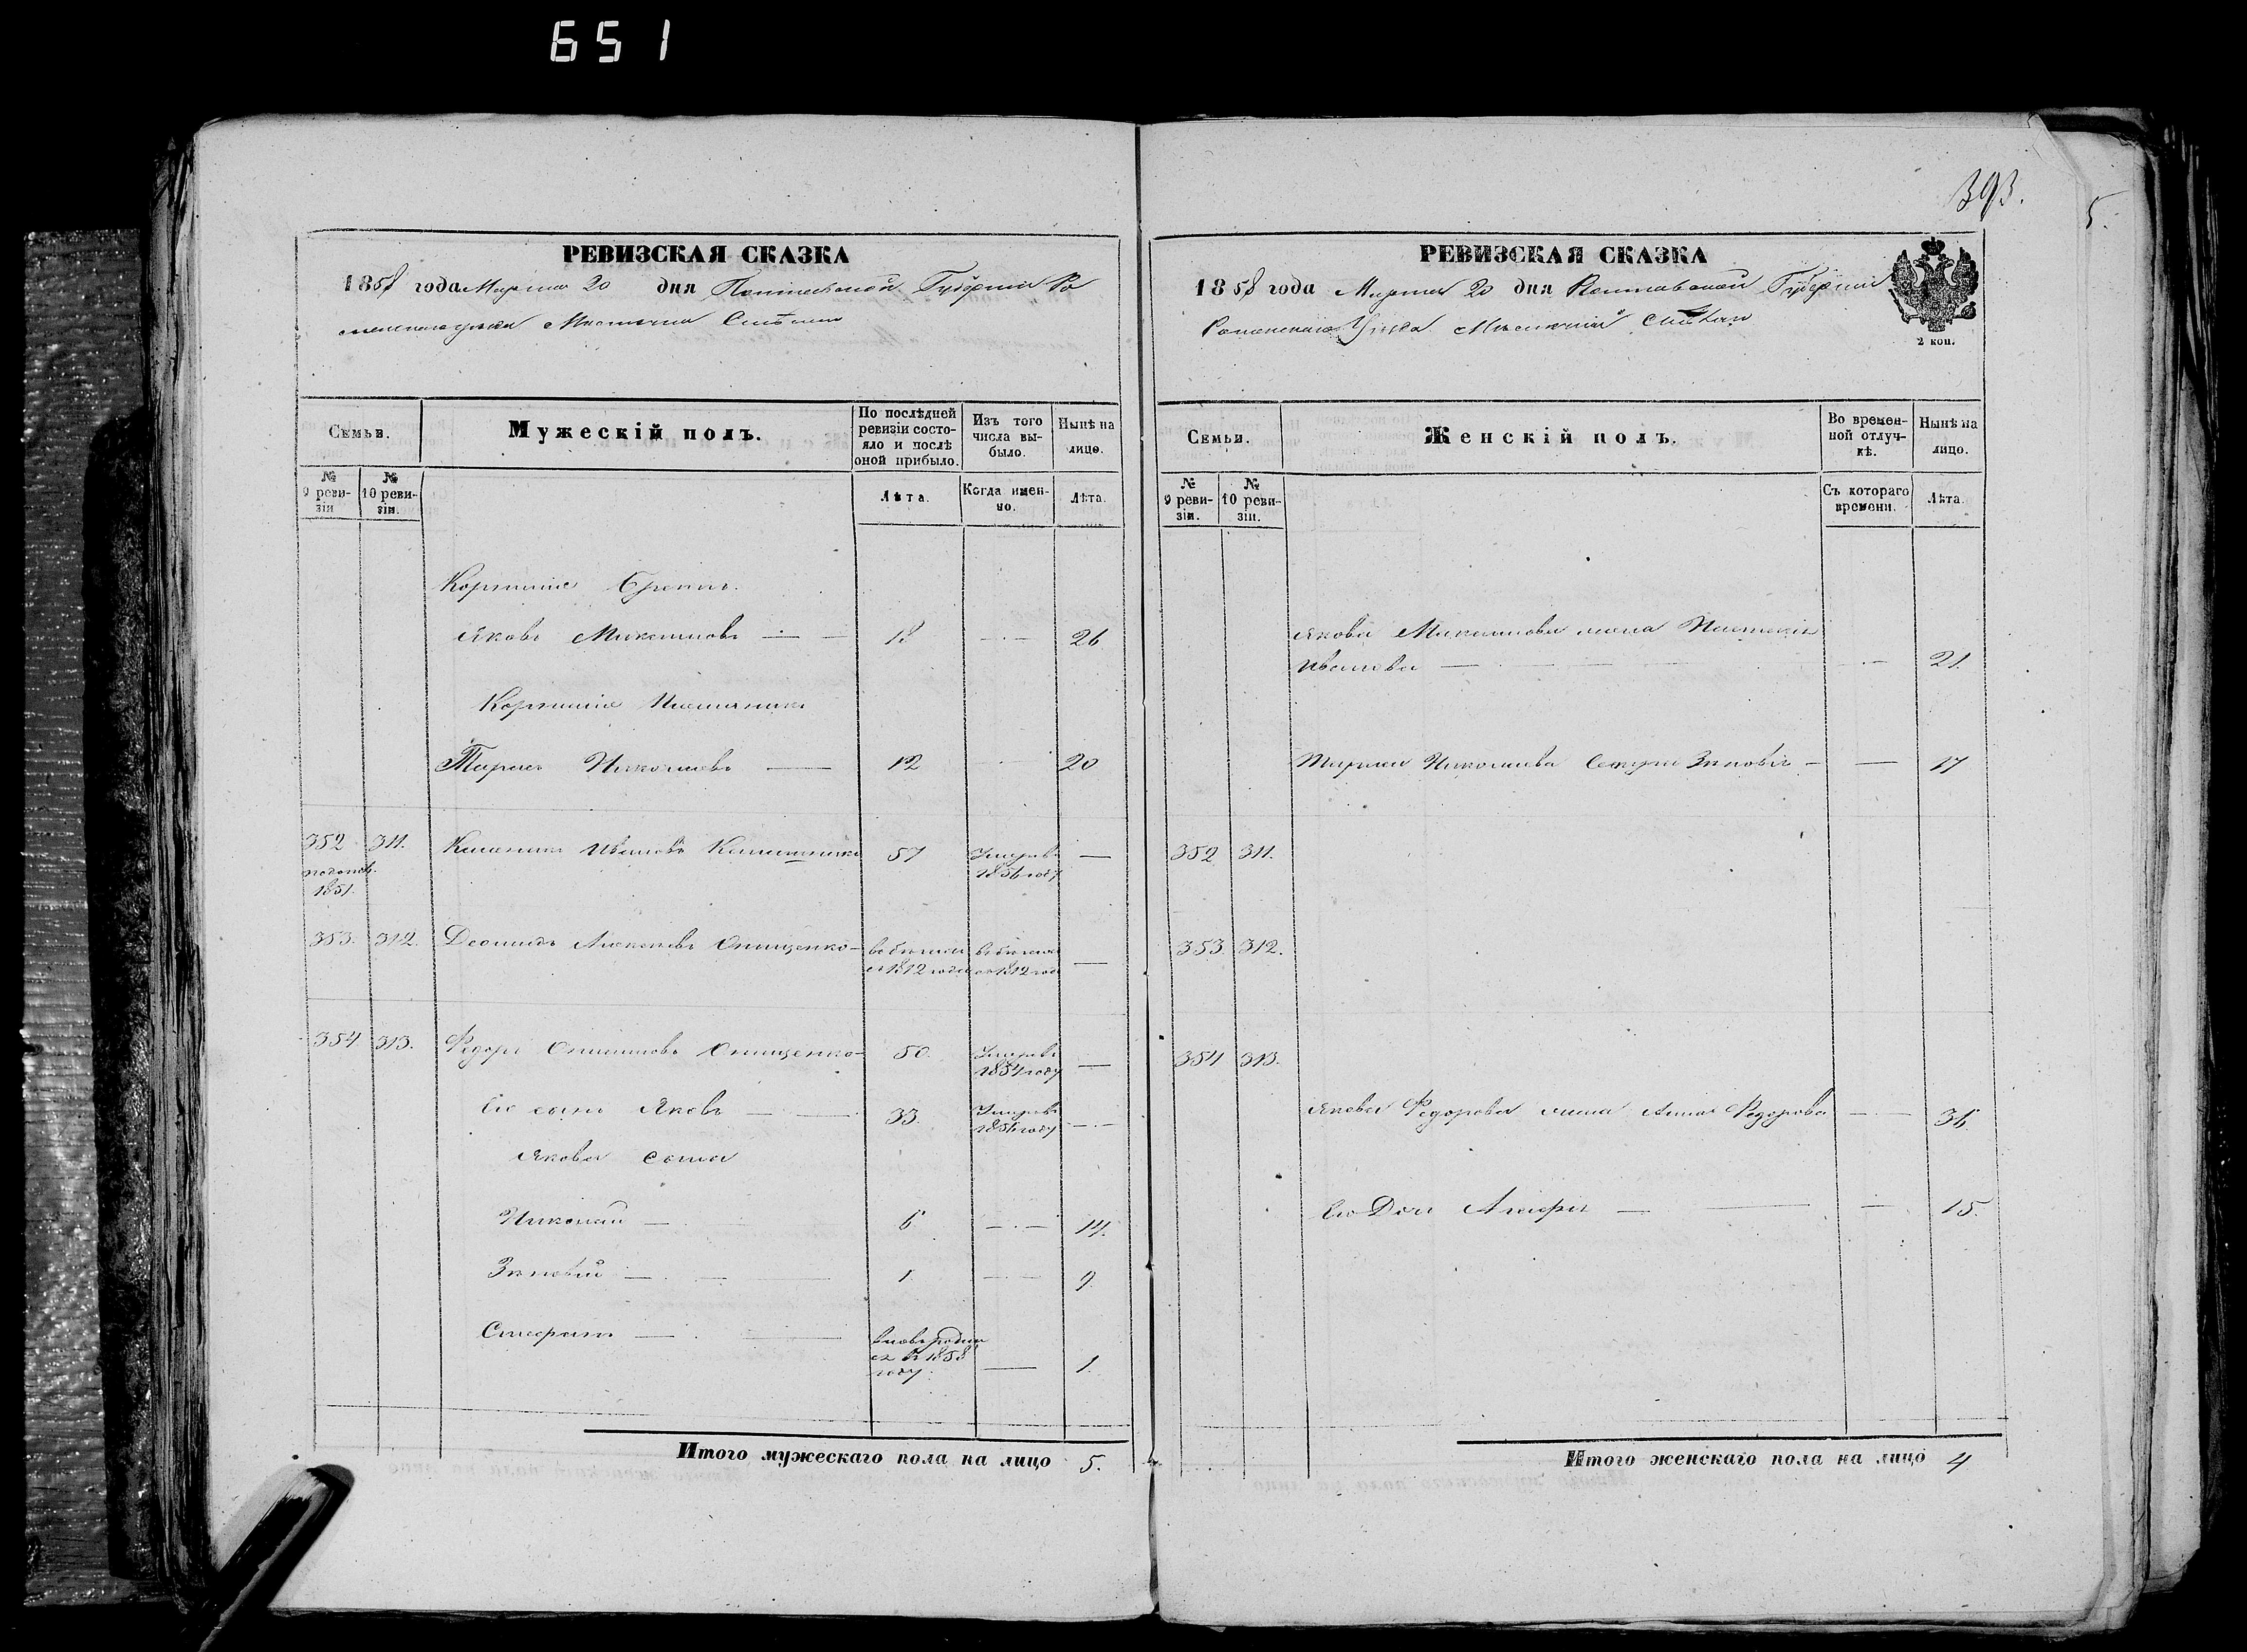 651
393.
5.
РЕВИЗСКАЯ СКАЗКА
1858 года Марта 20 дня Полтавской Губернии Ро
менскаго уѣзда Мѣстечка
Семьи.
Мужескій полъ.
По послѣдней ревизіи состо-
яло и послѣ
оной прибыло.
Изъ того
числа вы-
было.
Нынѣ на
лицо.
№
9 реви-
зіи
№
10 реви-
зіи.
Лѣта.
Когда имен-
но.
Лѣта.
Корнилія
Яковъ — 18 — 26
Корнилія Племянникъ
Тарасъ Николаевъ — 12 — 20
352 311. Ивановъ 57 Умеръ въ —
1851. 1856 году
353. 312. Онищенко — въ бѣгахъ въ бѣгахъ —
съ 1812 года съ 1812 года
354 313. Федоръ Онищенко — 50. Умеръ въ —
1854 году
Его сынъ Яковъ — 33. Умеръ въ —
1856 году
Якова сыны
Николай — 6 — 14.
Зиновій — 1. — 9.
— вновь родил
ся въ 1858
году. — 1.
Итого мужескаго пола на лицо 5.
РЕВИЗСКАЯ СКАЗКА
1858 года Марта 20 дня Полтавской Губерніи
Роменскаго Уѣзда Мѣстечка
2 коп.
Семьи.
Женскій полъ.
Во времен-
ной отлуч-
кѣ.
Нынѣ на
лицо.
№
9 реви-
зіи.
№
10 реви-
зіи.
Съ котораго
времени.
Лѣта.
Якова жена
Иванова — 21.
Тараса Николаева Сестра Зиновія — 17
352 311.
353. 312.
354 313.
Якова Федорова жена Анна Федорова — 36.
Его Дочь — 15.
Итого женскаго пола на лицо 4